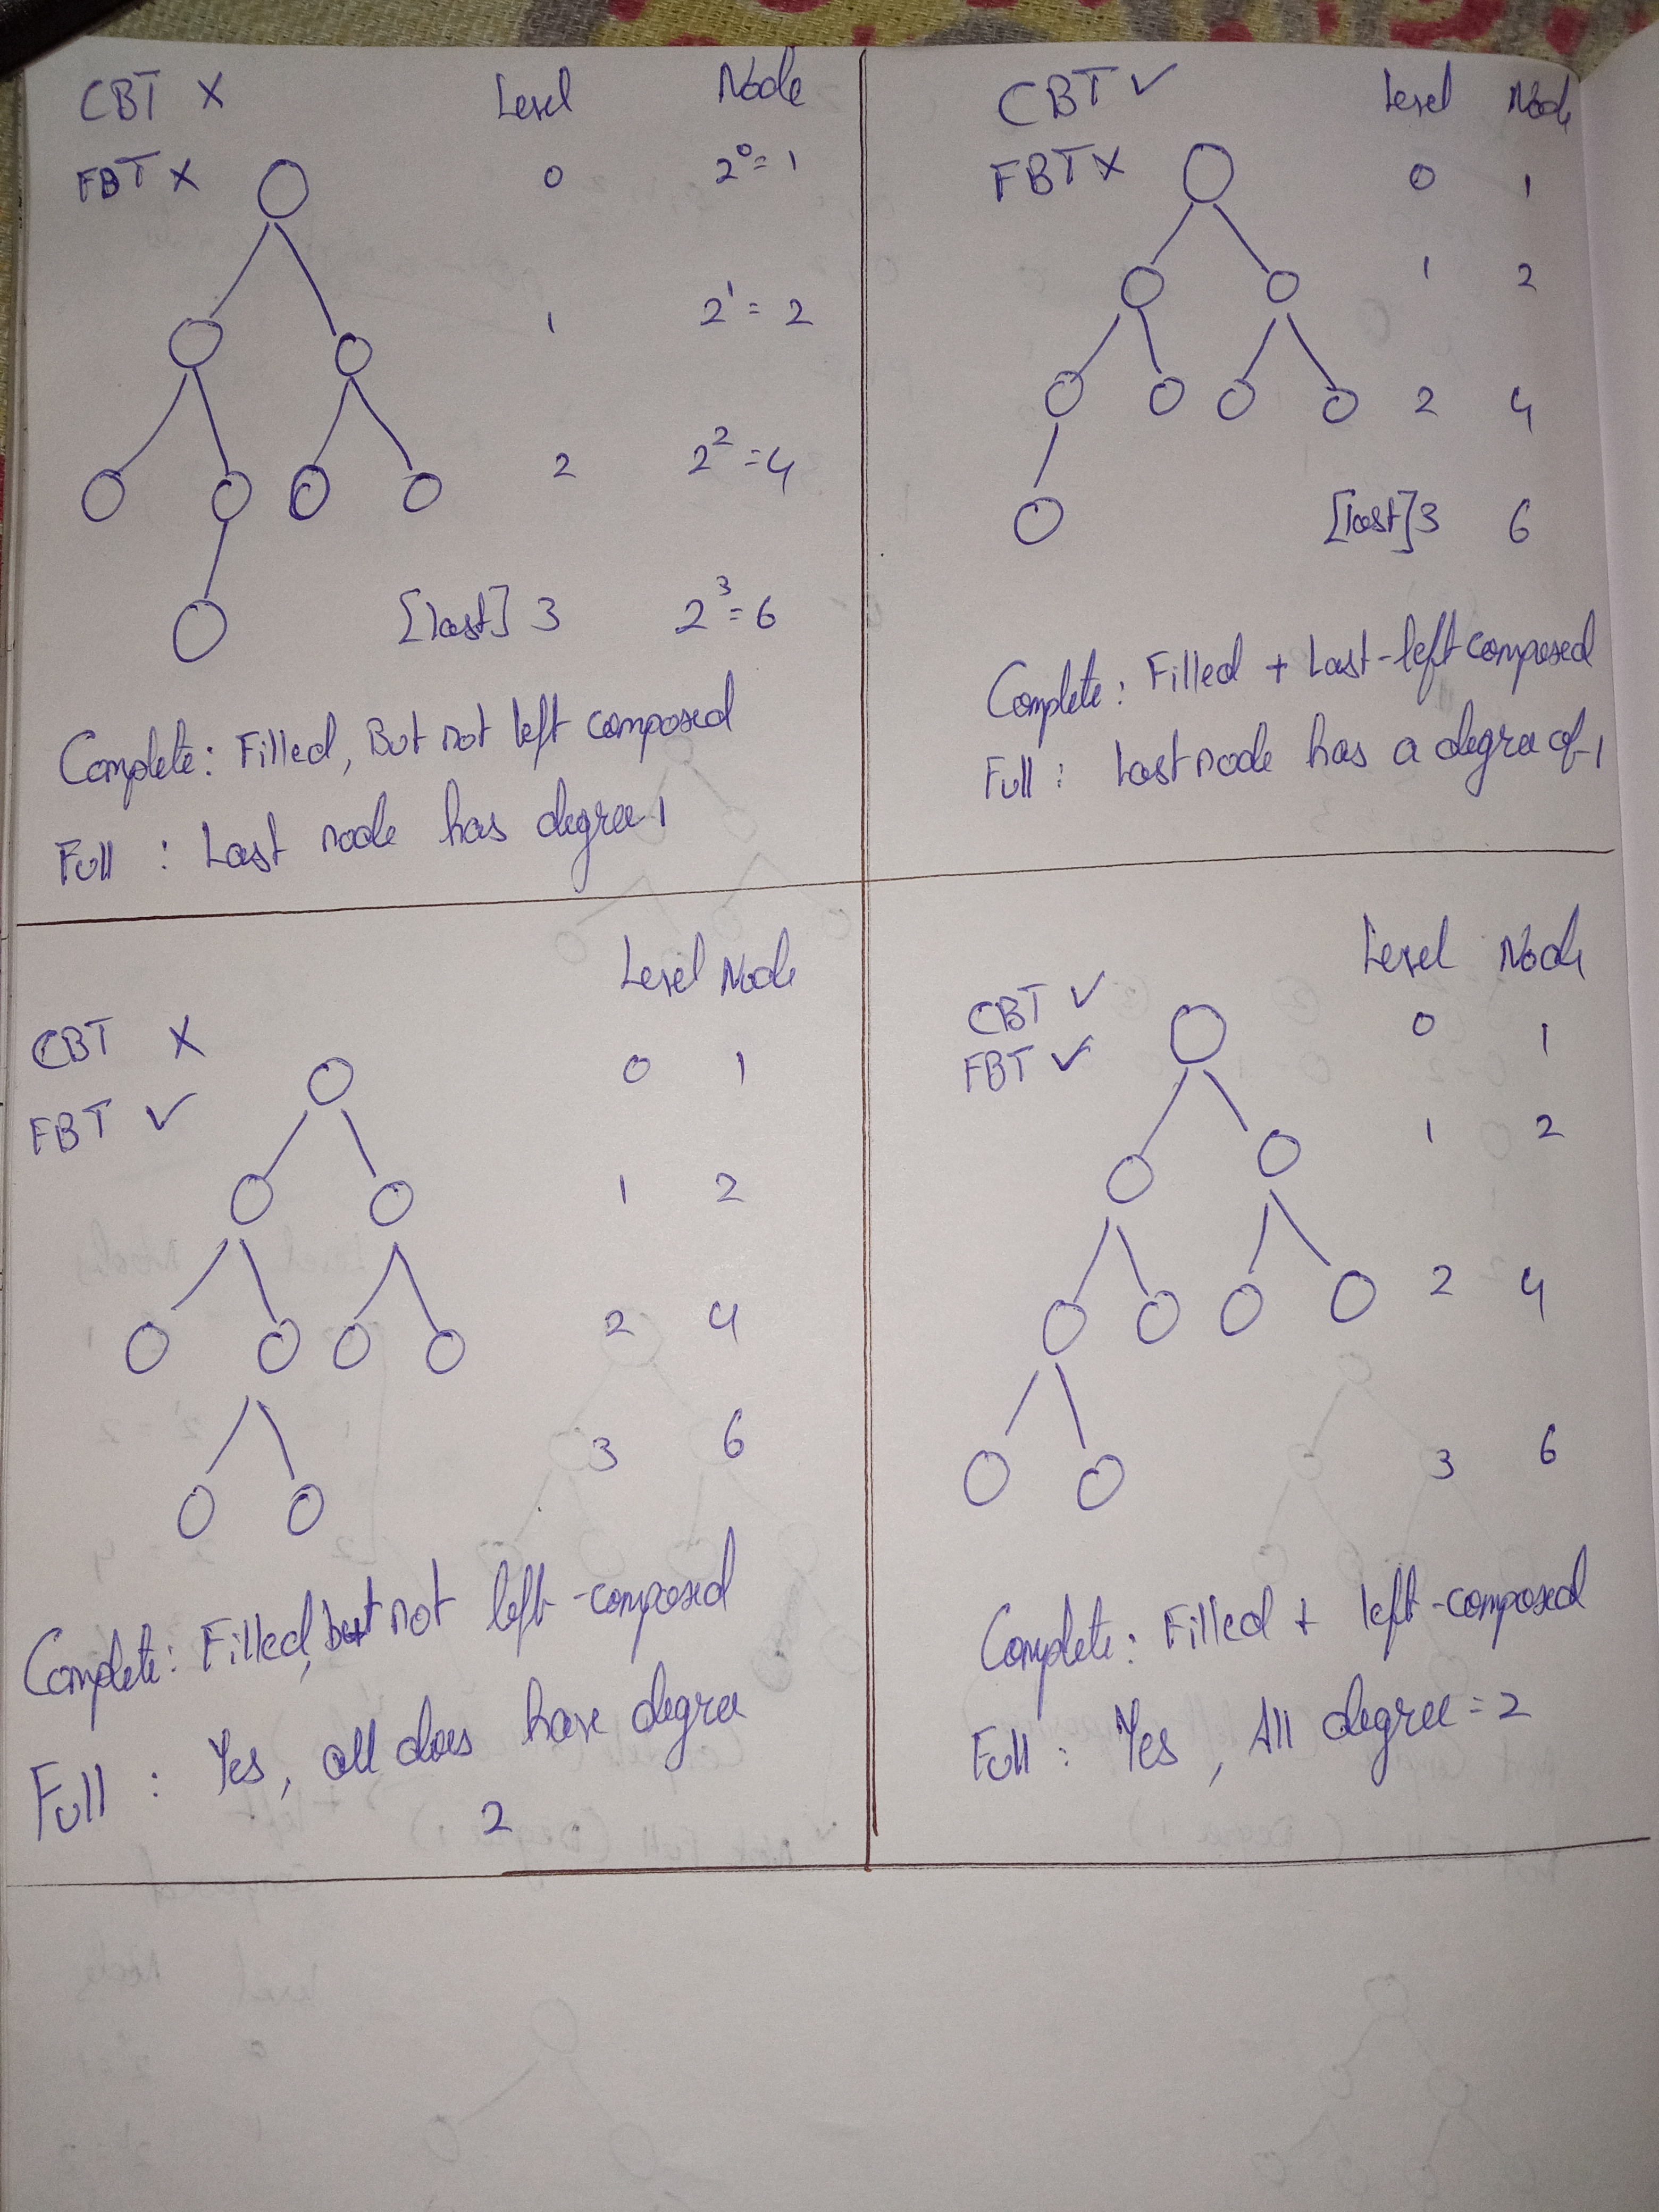 CBT X Level Node
FBT X 0 2⁰ = 1
1 2¹ = 2
2 2² = 4
[last] 3 2³ = 6
Complete: Filled, But not left composed
Full : Last node has degree 1
CBT ✓ Level Node
FBT X 0 1
1 2
2 4
[last] 3 6
Complete: Filled + Last-left composed
Full : Last node has a degree of 1
Level Node
CBT X 0 1
FBT ✓
1 2
2 4
3 6
Complete: Filled, but not left-composed
Full : Yes, all does have degree
2
Level Node
CBT ✓ 0 1
FBT ✓
1 2
2 4
3 6
Complete: Filled + left-composed
Full : Yes, All degree = 2